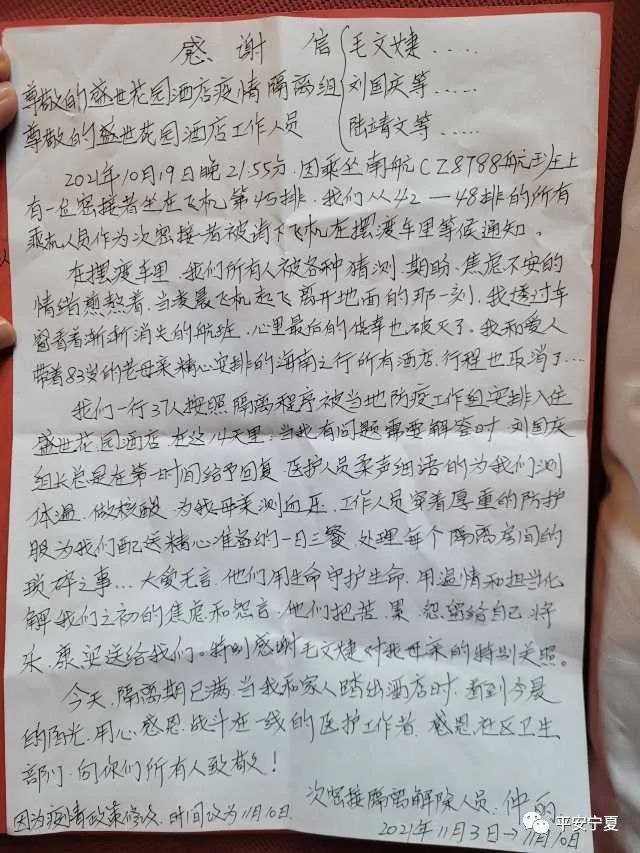 感谢信 { 毛文婕.....
尊敬的盛世花园酒店疫情隔离组 { 刘国庆等.....
尊敬的盛世花园酒店工作人员 { 陆靖文等....
2021年10月19日晚21:55分.因乘坐南航CZ8788航班上
有一位密接者坐在飞机第45排.我们从42—48排的所有
乘机人员作为次密接者被请下飞机在摆渡车里等候通知。
在摆渡车里.我们所有人被各种猜测.期盼.焦虑不安的
情绪煎熬着.当凌晨飞机起飞离开地面的那一刻.我透过车
窗看着渐渐消失的航班.心里最后的侥幸也破灭了.我和爱人
带着83岁的老母亲精心安排的海南之行所有酒店.行程也取消了...
我们一行37人按照隔离程序被当地防疫工作组安排入住
盛世花园酒店.在这14天里:当我有问题需要解答时.刘国庆
组长总是在第一时间给予回复.医护人员柔声细语的为我们测
体温.做核酸.为我母亲测血压.工作人员穿着厚重的防护
服为我们配送精心准备的一日三餐.处理每个隔离房间的
琐碎之事...大爱无言.他们用生命守护生命.用温情和担当化
解我们之初的焦虑和怨言.他们把苦.累.怨留给自己.将
乐.康.安送给我们。特别感谢毛文婕对我母亲的特别关照。
今天.隔离期已满.当我和家人踏出酒店时.看到今晨
的阳光.用心感恩.战斗在一线的医护工作者.感恩社区卫生
部门.向你们所有人致敬!
次密接隔离解除人员:仲
因为疫情政策修改.时间改为11月10日. 2021年11月3日→11月10日
平安宁夏